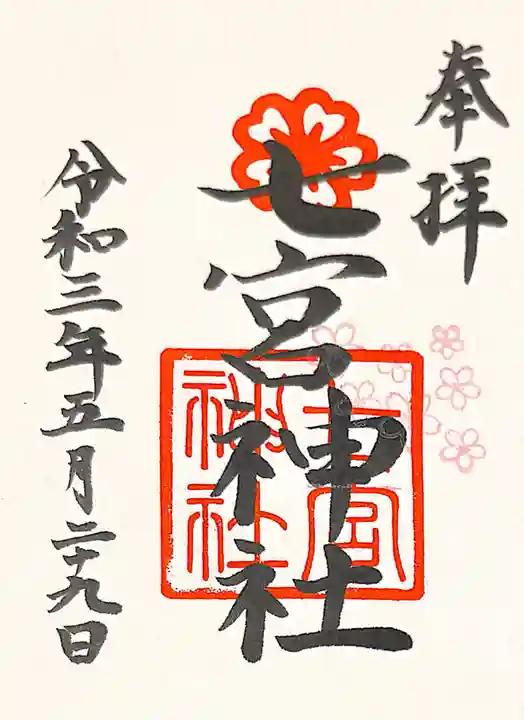 奉拝
七宮神社
七宮
神社
令和三年五月二十九日